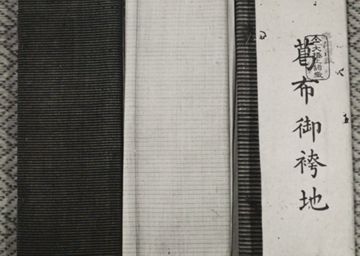 葛布御袴地